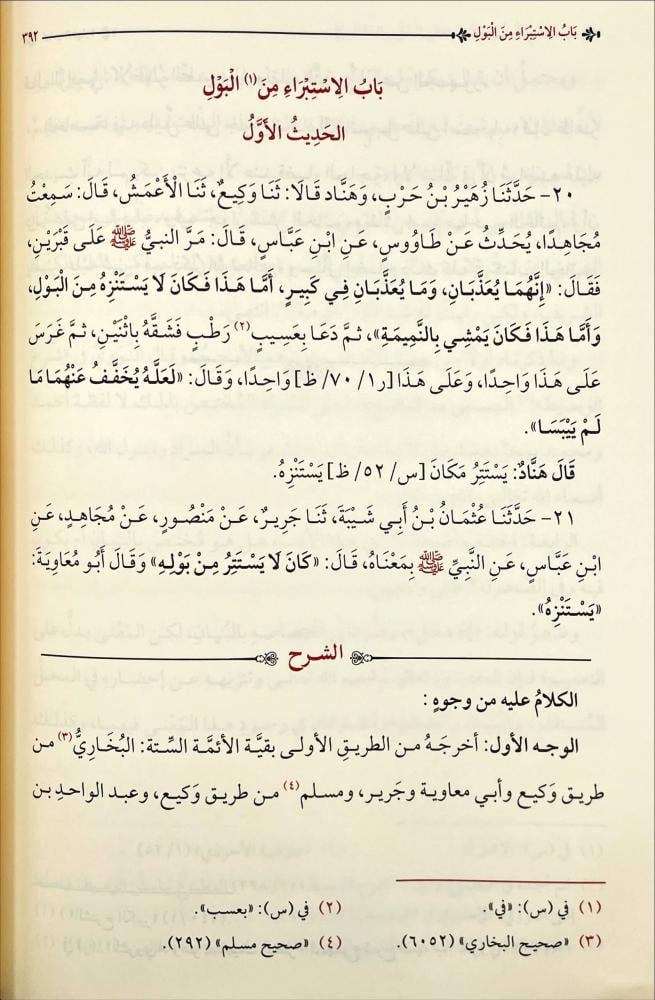 بَابُ الِاسْتِبْرَاءِ مِنَ الْبَوْلِ
٣٩٢
بَابُ الِاسْتِبْرَاءِ مِنَ (١) الْبَوْلِ
الحَدِيثُ الأَوَّلُ
٢٠- حَدَّثَنَا زُهَيْرُ بْنُ حَرْبٍ، وَهَنَّاد قَالَا: ثَنَا وَكِيعٌ، ثَنَا الْأَعْمَشُ، قَالَ: سَمِعْتُ
مُجَاهِدًا، يُحَدِّثُ عَنْ طَاوُوسٍ، عَنِ ابْنِ عَبَّاسٍ، قَالَ: مَرَّ النبيُّ ﷺ عَلَى قَبْرَيْنِ،
فَقَالَ: «إِنَّهُمَا يُعَذَّبَانِ، وَمَا يُعَذَّبَانِ فِي كَبِيرٍ، أَمَّا هَذَا فَكَانَ لَا يَسْتَنْزِهُ مِنَ الْبَوْلِ،
وَأَمَّا هَذَا فَكَانَ يَمْشِي بِالنَّمِيمَةِ»، ثمَّ دَعَا بِعَسِيبٍ (٢) رَطْبٍ فَشَقَّهُ بِاثْنَيْنِ، ثمَّ غَرَسَ
عَلَى هَذَا وَاحِدًا، وَعَلَى هَذَا [ر١/ ٧٠/ ظ] وَاحِدًا، وَقَالَ: «لَعَلَّهُ يُخَفَّفُ عَنْهُمَا مَا
لَمْ يَيْبَسَا».
قَالَ هَنَّادٌ: يَسْتَتِرُ مَكَانَ [س/ ٥٢/ ظ] يَسْتَنْزِهُ.
٢١- حَدَّثَنَا عُثْمَانُ بْنُ أَبِي شَيْبَةَ، ثَنَا جَرِيرٌ، عَنْ مَنْصُورٍ، عَنْ مُجَاهِدٍ، عَنِ
ابْنِ عَبَّاسٍ، عَنِ النَّبِيِّ ﷺ بِمَعْنَاهُ، قَالَ: «كَانَ لَا يَسْتَتِرُ مِنْ بَوْلِهِ» وَقَالَ أَبُو مُعَاوِيَةَ:
«يَسْتَنْزِهُ».
الشرح
الكلامُ عليه من وجوهٍ:
الوجه الأول: أخرجَهُ من الطريقِ الأولى بقيَّة الأئمَّة السِّتة: البُخَاريُّ (٣) من
طريق وَكيع وأبي معاوية وجَرير، ومسلم (٤) من طريق وَكيع، وعبد الواحدِ بن
(١) في (س): «في».
(٢) في (س): «بعسب».
(٣) «صحيح البخاري» (٦٠٥٢).
(٤) «صحيح مسلم» (٢٩٢).